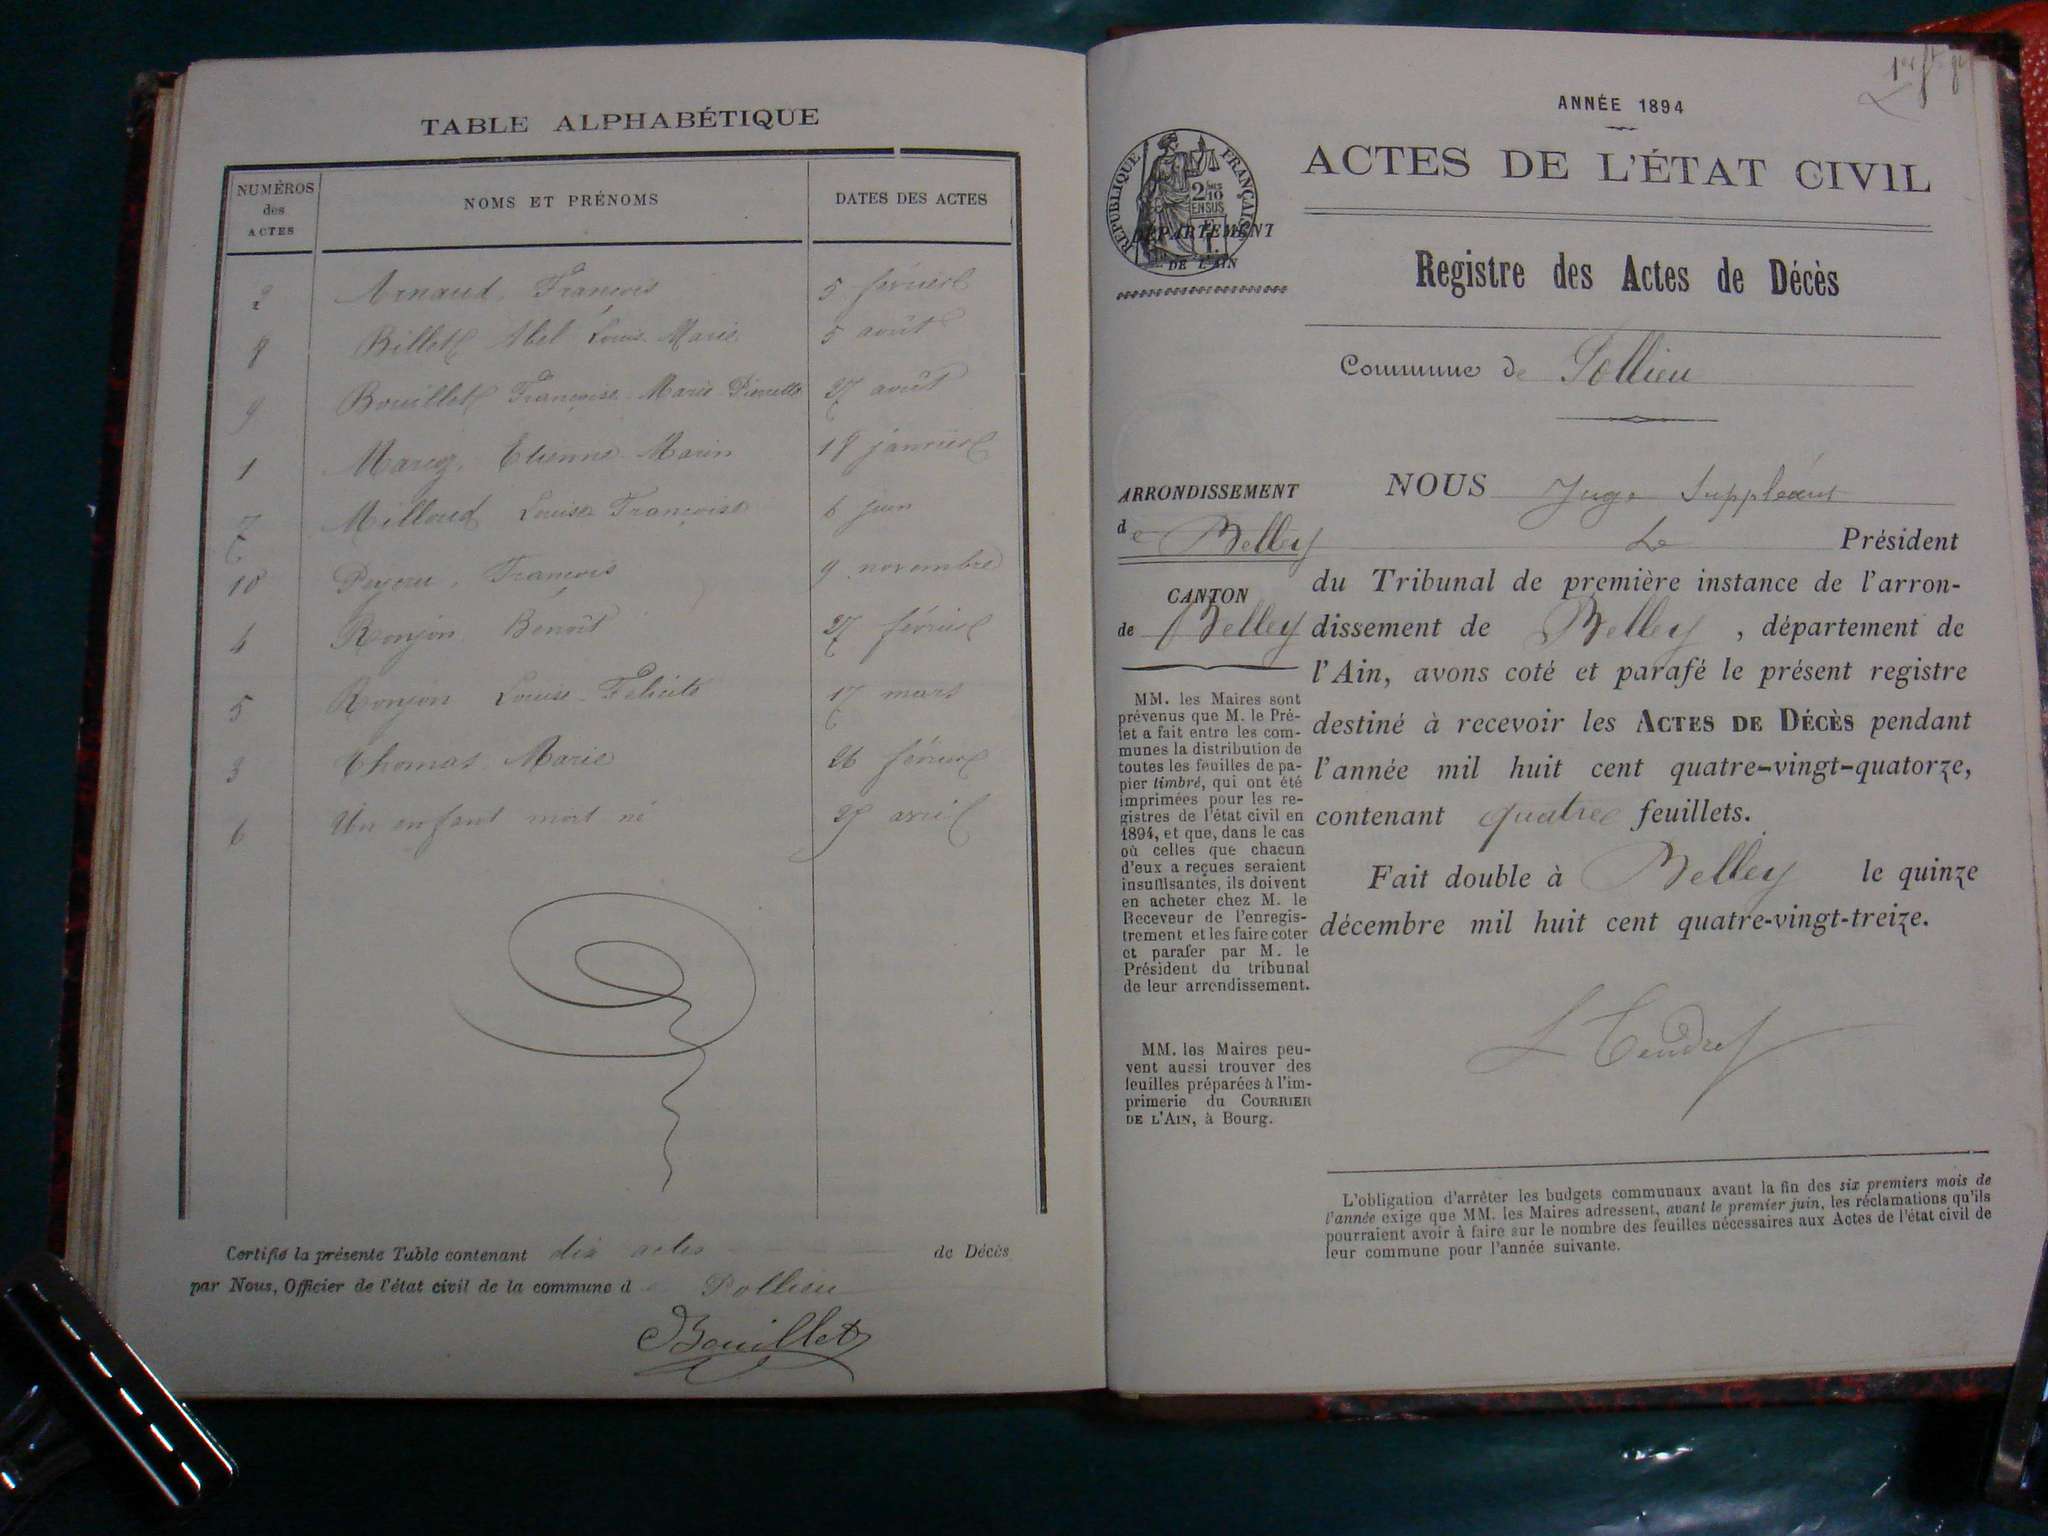 TABLE ALPHABÉTIQUE
NUMÉROS des ACTES
NOMS ET PRÉNOMS
DATES DES ACTES
2 Arnaud, François 5 février
8 Billet Abel Louis Marie 5 août
9 Bouillet Françoise Marie Pierrette 27 août
1 Etienne Marin 18 janvier
7 Milloud Louise Françoise 6 juin
10 François 9 novembre
4 Ronjon Benoît 27 février
5 Ronjon Louise Félicité 17 mars
3 Thomas Marie 26 février
6 Un enfant mort né 28 avril
Certifié la présente Table contenant dix actes de Décès
par Nous, Officier de l'état civil de la commune de Pollieu
Bouillet
ANNÉE 1894
ACTES DE L'ÉTAT CIVIL
RÉPUBLIQUE FRANÇAISE
2/10 EN SUS
DÉPARTEMENT
DE L'AIN
Registre des Actes de Décès
Commune de Pollieu
ARRONDISSEMENT
de Belley
CANTON
de Belley
MM. les Maires sont
prévenus que M. le Pré-
fet a fait entre les com-
munes la distribution de
toutes les feuilles de pa-
pier timbré, qui ont été
imprimées pour les re-
gistres de l'état civil en
1894, et que, dans le cas
où celles que chacun
d'eux a reçues seraient
insuffisantes, ils doivent
en acheter chez M. le
Receveur de l'enregis-
trement et les faire coter
et parafer par M. le
Président du tribunal
de leur arrondissement.
MM. les Maires peu-
vent aussi trouver des
feuilles préparées à l'im-
primerie du COURRIER
DE L'AIN, à Bourg.
NOUS Juge Suppléant
Le Président
du Tribunal de première instance de l'arron-
dissement de Belley, département de
l'Ain, avons coté et parafé le présent registre
destiné à recevoir les ACTES DE DÉCÈS pendant
l'année mil huit cent quatre-vingt-quatorze,
contenant quatre feuillets.
Fait double à Belley le quinze
décembre mil huit cent quatre-vingt-treize.
L'obligation d'arrêter les budgets communaux avant la fin des six premiers mois de
l'année exige que MM. les Maires adressent, avant le premier juin, les réclamations qu'ils
pourraient avoir à faire sur le nombre des feuilles nécessaires aux Actes de l'état civil de
leur commune pour l'année suivante.